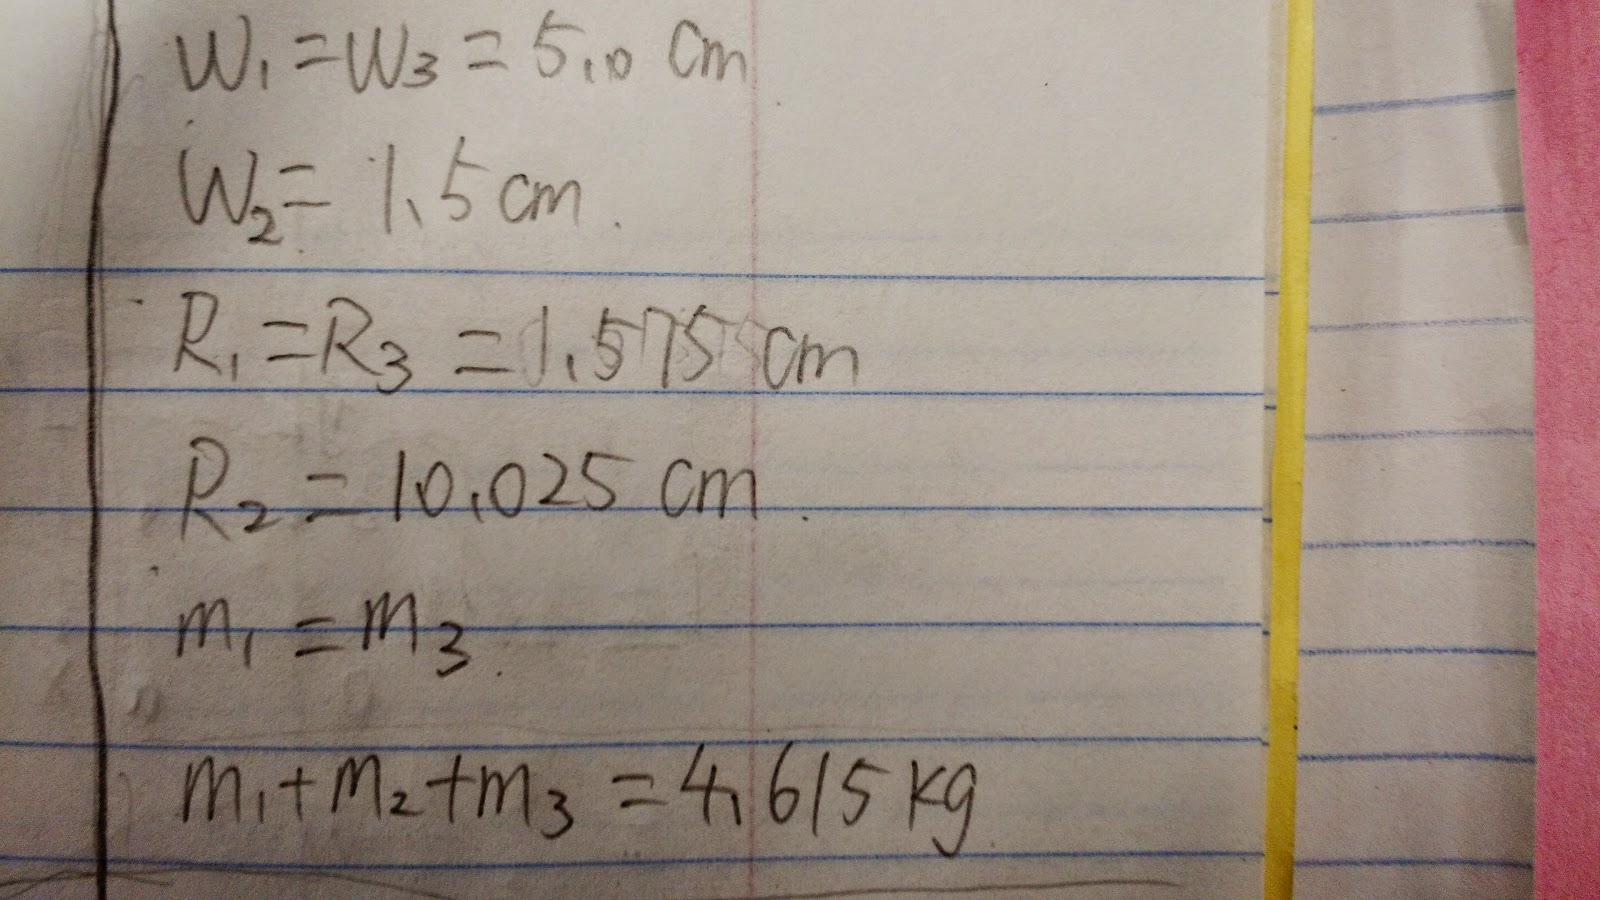 W₁ = W₃ = 5.0 cm
W₂ = 1.5 cm.
R₁ = R₃ = 1.575 cm
R₂ = 10.025 cm.
m₁ = m₃.
m₁ + m₂ + m₃ = 4.615 kg